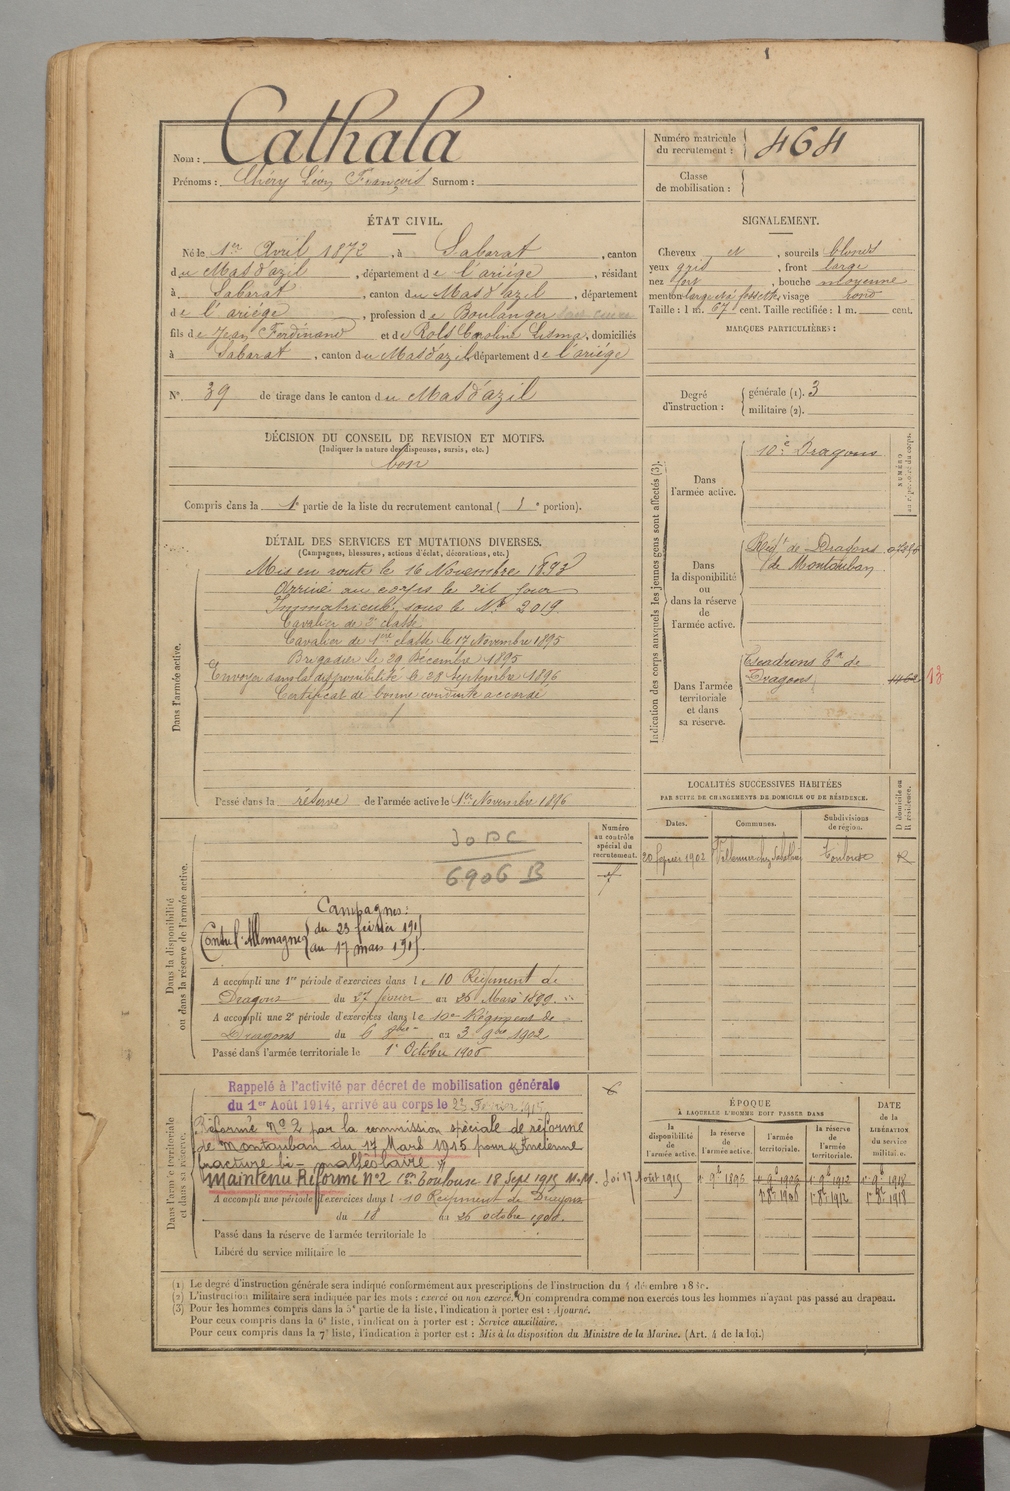 Nom : Cathala
Prénoms : Chéry Léon François Surnom :
Numéro matricule du recrutement : 464
Classe de mobilisation :
ÉTAT CIVIL.
Né le 1er Avril 1872, à Sabarat, canton
du Mas d'azil, département de l'ariége, résidant
à Sabarat, canton du Mas d'azil, département
de l'ariége, profession de Boulanger
fils de Jean Ferdinand et de Rols Caroline, domiciliés
à Sabarat, canton du Mas d'azil, département de l'ariége
N° 39 de tirage dans le canton du Mas d'azil
DÉCISION DU CONSEIL DE REVISION ET MOTIFS.
(Indiquer la nature des dispenses, sursis, etc.)
bon
Compris dans la 1e partie de la liste du recrutement cantonal ( 1e portion).
DÉTAIL DES SERVICES ET MUTATIONS DIVERSES.
(Campagnes, blessures, actions d'éclat, décorations, etc.)
Dans l'armée active.
Mis en route le 16 Novembre 1893
Arrivé au corps le dit jour
Immatriculé sous le N° 2019
Cavalier de 2e classe
Cavalier de 1ère classe le 17 Novembre 1895
Brigadier le 29 Décembre 1895
Envoyé dans la disponibilité le 28 septembre 1896
Certificat de bonne conduite accordé
Passé dans la réserve de l'armée active le 1er Novembre 1896
Numéro au contrôle spécial du recrutement.
Dans la disponibilité ou dans la réserve de l'armée active.
6906 B
Campagnes :
Contre l'Allemagne du 23 février 1915
au 17 mars 1915.
A accompli une 1re période d'exercices dans le 10 Régiment de
Dragons du 27 février au 26 Mars 1899.
A accompli une 2e période d'exercices dans le 10e Régiment de
Dragons du 6 8bre au 3 9bre 1902
Passé dans l'armée territoriale le 1er Octobre 1906
Dans l'armée territoriale et dans sa réserve.
Rappelé à l'activité par décret de mobilisation générale
du 1er Août 1914, arrivé au corps le 23 Février 1915
Réformé n° 2 par la commission spéciale de réforme
de Montauban du 17 Mars 1915 pour ancienne
fracture bi-malléolaire
Maintenu Réformé N°2 Toulouse 18 Sept 1915 Loi 17 Août 1915
A accompli une période d'exercices dans le 10 Régiment de Dragons
du 18 au 26 octobre 1908.
Passé dans la réserve de l'armée territoriale le
Libéré du service militaire le
SIGNALEMENT.
Cheveux et, sourcils blonds
yeux gris, front large
nez fort, bouche moyenne
menton large et à fossette, visage rond
Taille : 1 m. 67 cent. Taille rectifiée : 1 m. cent.
MARQUES PARTICULIÈRES :
Degré d'instruction : générale (1). 3
militaire (2).
Indication des corps auxquels les jeunes gens sont affectés (3).
NUMÉRO
Dans l'armée active. 10e Dragons
Dans la disponibilité ou dans la réserve de l'armée active. Régt de Dragons
de Montauban
Dans l'armée territoriale et dans sa réserve. Escadrons Taux de
Dragons
LOCALITÉS SUCCESSIVES HABITÉES
PAR SUITE DE CHANGEMENTS DE DOMICILE OU DE RÉSIDENCE.
Dates. Communes. Subdivisions de région. D domicile ou R résidence.
20 février 1902 Toulouse R
ÉPOQUE
A LAQUELLE L'HOMME DOIT PASSER DANS
la disponibilité de l'armée active. la réserve de l'armée active. l'armée territoriale. la réserve de l'armée territoriale.
DATE de la LIBÉRATION du service militaire.
1er 9bre 1896 1er 9bre 1906 1er 9bre 1912 1er 9bre 1918
1er 8bre 1906 1er 8bre 1912 1er 8bre 1918
(1) Le degré d'instruction générale sera indiqué conformément aux prescriptions de l'instruction du 4 décembre 1889.
(2) L'instruction militaire sera indiquée par les mots : exercé ou non exercé. On comprendra comme non exercés tous les hommes n'ayant pas passé au drapeau.
(3) Pour les hommes compris dans la 5e partie de la liste, l'indication à porter est : Ajourné.
Pour ceux compris dans la 6e liste, l'indication à porter est : Service auxiliaire.
Pour ceux compris dans la 7e liste, l'indication à porter est : Mis à la disposition du Ministre de la Marine. (Art. 4 de la loi.)